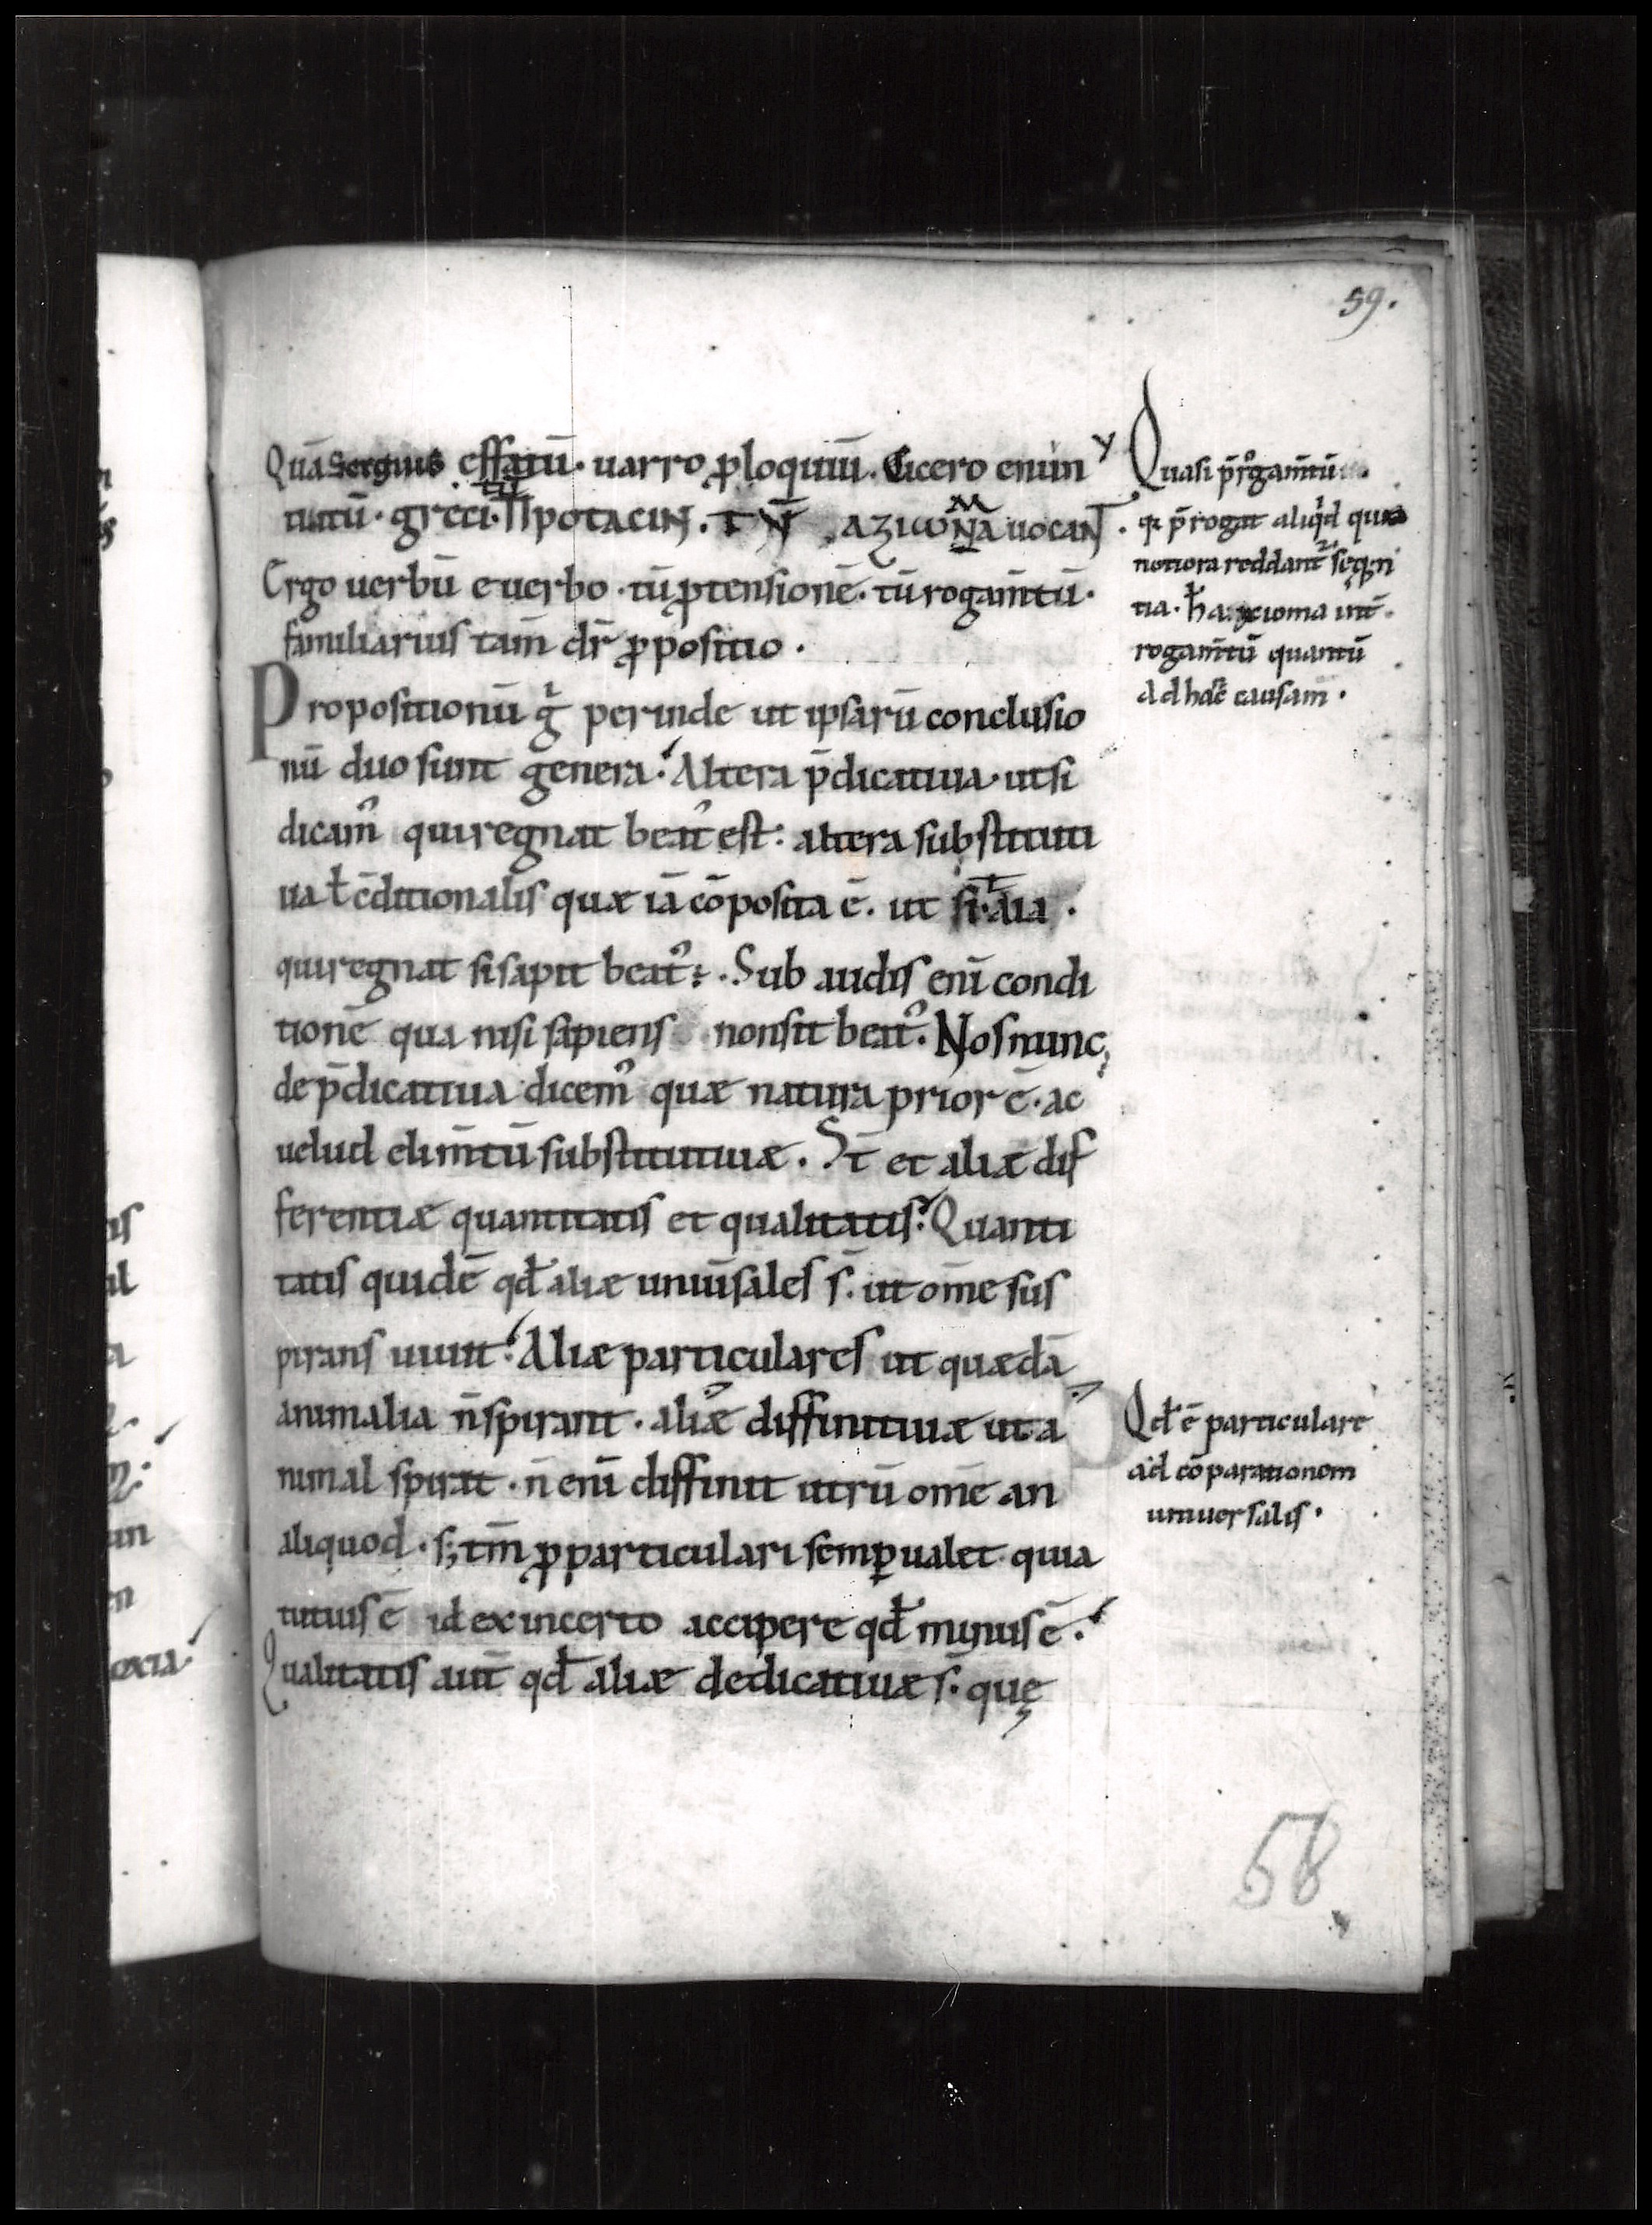 59.
Quā Sergius effatū· uarro ꝓloquiū. Cicero enun
tiatū· greci· Πpotacin. T N̄ aziωMNa uocaNT
Ergo uerbū e uerbo · tū ꝓtensionē· tū rogam̄tū·
familiarius tam̄ dr̄ ꝓpositio ·
Propositionū g̊ perinde ut ipsarū conclusio
nū duo sunt genera· Altera p̄dicatiua· ut si
dicamꝰ qui regnat beatꝰ est· altera substituti
ua ł c̄ditionalis quæ iā cōposita ē. ut si aia ·
qui regnat si sapit beatꝰ ÷. Sub audis enī condi
tionē qua nisi sapiens non sit beatꝰ. Nos nunc
de p̄dicatiua dicemꝰ quæ natura prior ē· ac
uelud elim̄tū substitutiuæ. St̄ et aliæ dif
ferentiæ quantitatis et qualitatis· Quanti
tatis quidē qđ aliæ uniūsales s̄· ut om̄e sus
pirans uiuit· Aliæ particulares ut quædā
animalia n̄ spirant · aliæ diffinitiuæ ut a
nimal spirat · n̄ enī diffinit utrū om̄e an
aliquod · s; tm̄ ꝓ particulari semꝑ ualet quia
tutius ē id ex incerto accipere qđ minus ē·
Qualitatis aut̄ qđ aliæ dedicatiuæ s̄· quę
Quasi p̄rogam̄tū
q̄ p̄rogat aliqđ qua
notiora reddant᷑ seq̄n
tia· h̄ axioma int̄
rogam̄tū quantū
Ad hāc causam ·
Qđ ē particulare
ad cōparationem
uniuersalis ·
58